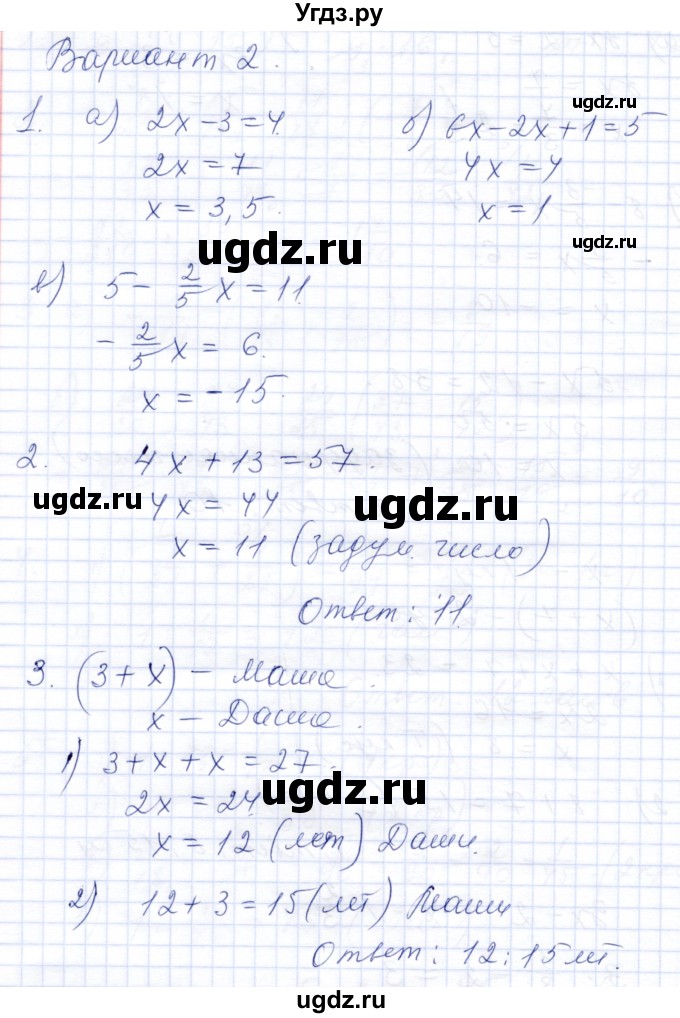 Угдз.ру
Вариант 2.
1. а) 2x-3=4. б) 6x-2x+1=5
2x=7 4x=4
x=3,5. x=1
в) 5-2/5x=11.
-2/5x=6.
x=-15.
2. 4x+13=57.
4x=44
x=11 (задум. число)
Ответ: 11.
3. (3+x) - Маша.
x - Даша.
1) 3+x+x=27.
2x=24.
x=12 (лет) Даши.
2) 12+3=15 (лет) Маши
Ответ: 12; 15 лет.
ugdz.ru
ugdz.ru
ugdz.ru
ugdz.ru
ugdz.ru
ugdz.ru
ugdz.ru
ugdz.ru
ugdz.ru